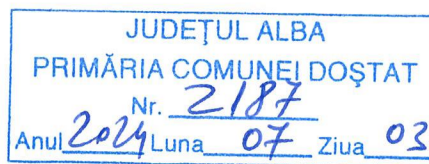 JUDEȚUL ALBA
PRIMĂRIA COMUNEI DOȘTAT
Nr. 2187
Anul 2024 Luna 07 Ziua 03